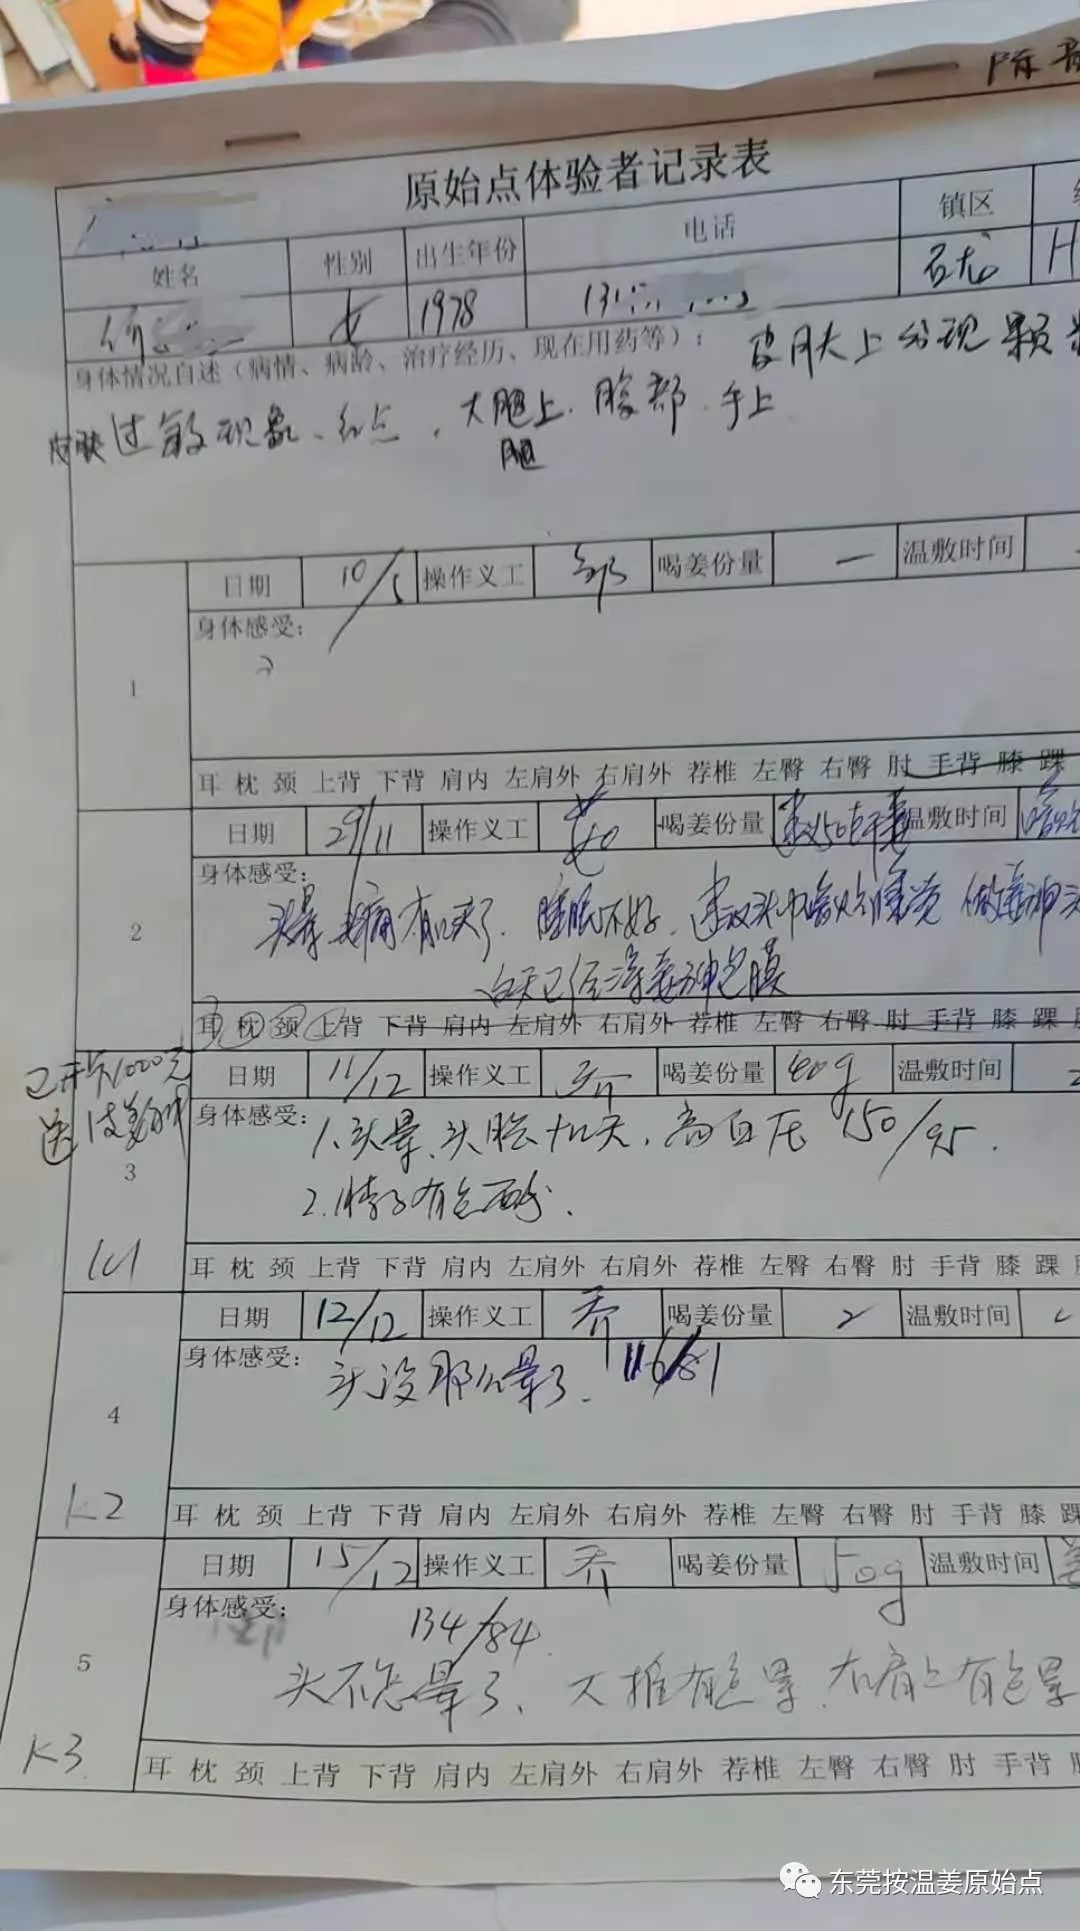 陈
原始点体验者记录表
姓名 性别 出生年份 电话 镇区
女 1978 131 石龙 H
身体情况自述（病情、病龄、治疗经历、现在用药等）： 皮肤上分现颗
皮肤过敏现象、红点，大腿上．腹部．手上
腿
1 日期 10/5 操作义工 喝姜份量 一 温敷时间
身体感受:
耳 枕 颈 上背 下背 肩内 左肩外 右肩外 荐椎 左臀 右臀 肘 手背 膝 踝
2 日期 29/11 操作义工 喝姜份量 温敷时间
身体感受:
头晕 头痛有几天了．睡眠不好．建议头巾
白天已
耳 枕 颈 上背 下背 肩内 左肩外 右肩外 荐椎 左臀 右臀 肘 手背 膝 踝
已开卡1000元
送
3 日期 11/12 操作义工 乔 喝姜份量 40g 温敷时间
身体感受: 1、头晕、头胀十几天，高血压 150/95．
2．脖子有点
K1
耳 枕 颈 上背 下背 肩内 左肩外 右肩外 荐椎 左臀 右臀 肘 手背 膝 踝
4 日期 12/12 操作义工 乔 喝姜份量 2 温敷时间
身体感受: 头没那么晕了． 116/81
K2
耳 枕 颈 上背 下背 肩内 左肩外 右肩外 荐椎 左臀 右臀 肘 手背 膝 踝
5 日期 15/12 操作义工 乔 喝姜份量 50g 温敷时间 姜
身体感受:
134/84
头不怎晕了、大椎有点晕．右肩上有点晕
K3
耳 枕 颈 上背 下背 肩内 左肩外 右肩外 荐椎 左臀 右臀 肘 手背
东莞按温姜原始点